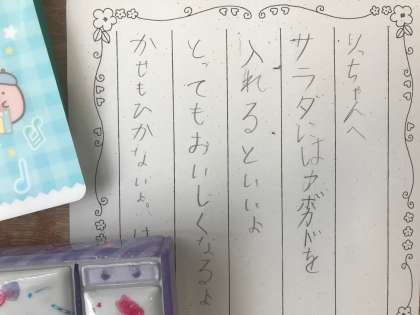 りっちゃんへ
サラダにはアボガドを
入れるといいよ
とってもおいしくなるよ
かぜもひかないよ。け